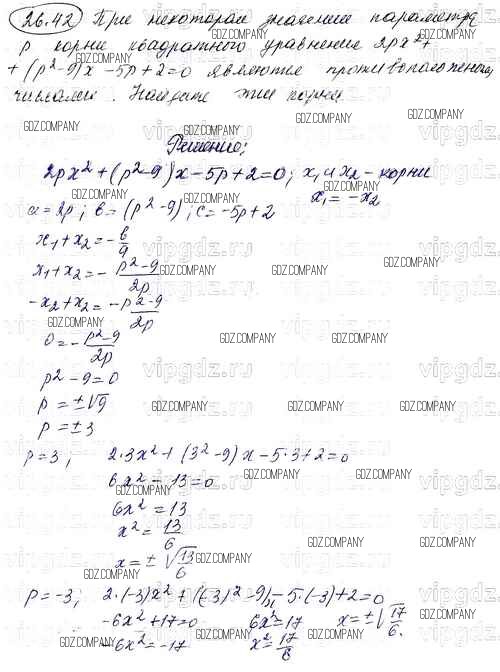 26.42 При некотором значении параметра
p корни квадратного уравнения 2px²+
+(p²-9)x-5p+2=0 являются противоположными
числами. Найдите эти корни.
Решение:
2px²+(p²-9)x-5p+2=0; x₁ и x₂ - корни
a=2p; b=(p²-9); c=-5p+2 x₁=-x₂
x₁+x₂=-b/a
x₁+x₂=-(p²-9)/2p
-x₂+x₂=-(p²-9)/2p
0=-(p²-9)/2p
p²-9=0
p=±√9
p=±3
p=3; 2·3x²+(3²-9)x-5·3+2=0
6x²-13=0
6x²=13
x²=13/6
x=±√13/6
p=-3; 2·(-3)x²+((-3)²-9)x-5·(-3)+2=0
-6x²+17=0 6x²=17 x=±√17/6.
-6x²=-17 x²=17/6
GDZ.COMPANY
vipgdz.ru